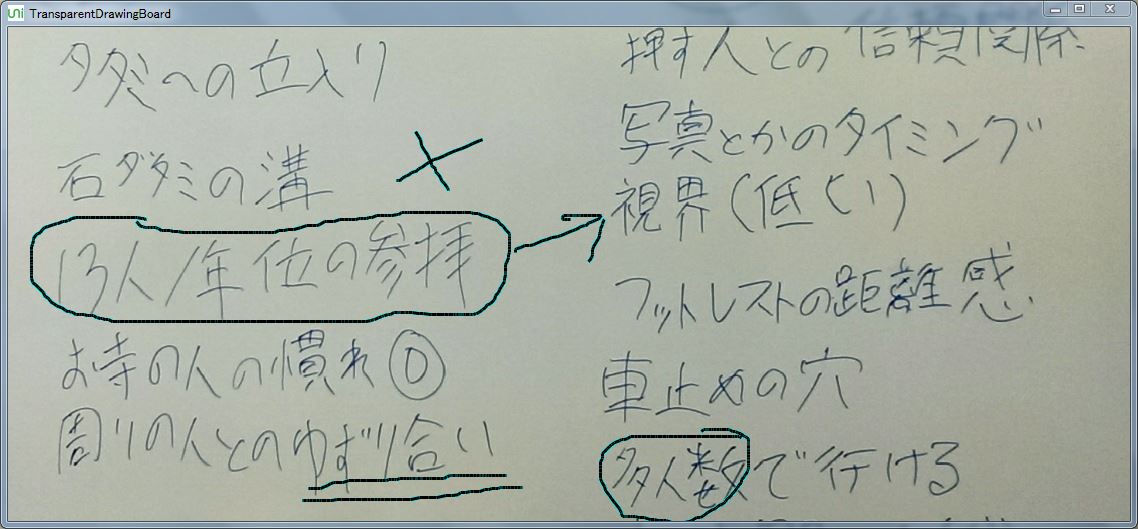 Uni TransparentDrawingBoard
タタミへの立入り
石ダタミの溝
13人/年位の参拝
お寺の人の慣れ⓪
周りの人とのゆずり合い
押す人との信頼関係
写真とかのタイミング
視界(低くい)
フットレストの距離感
車止めの穴
多人数で行ける